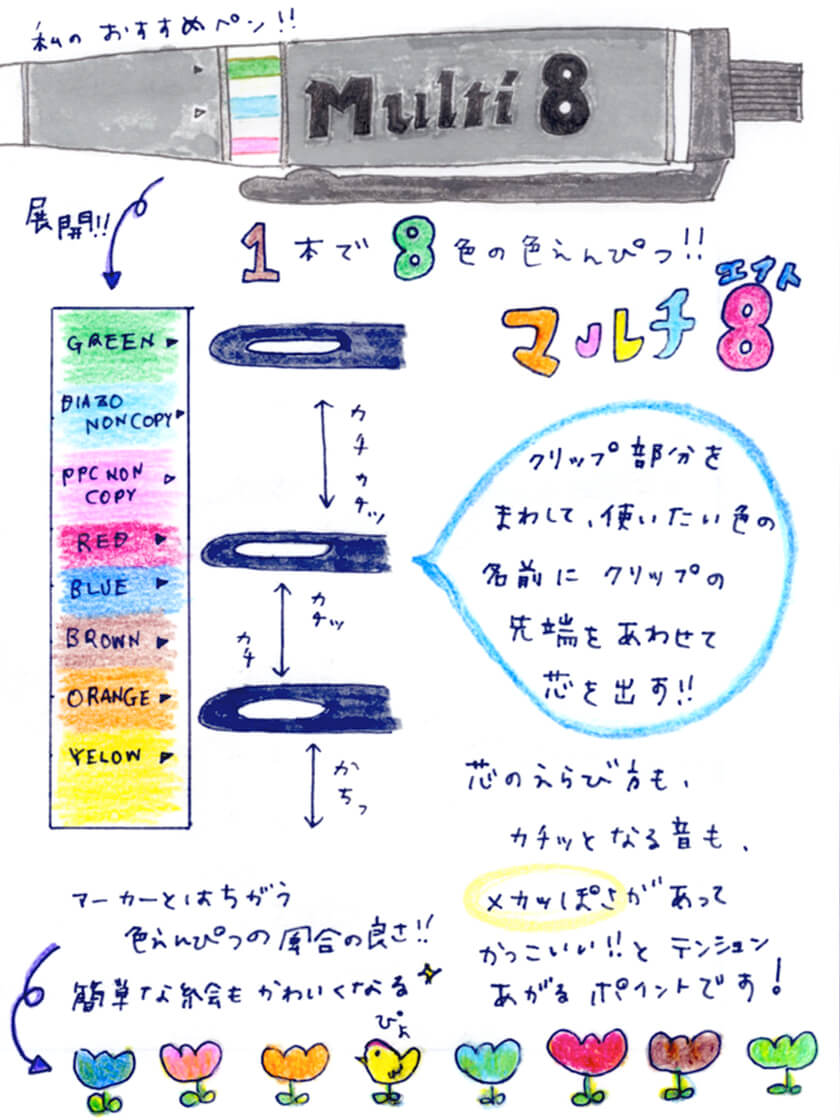 私のおすすめペン!!
Multi 8
展開!!
1本で8色の色えんぴつ!!
エイト
マルチ8
GREEN
DIAZO
NONCOPY
PPC NON
COPY
RED
BLUE
BROWN
ORANGE
YELOW
カチカチッ
カチッ
カチ
かちっ
クリップ部分を
まわして、使いたい色の
名前にクリップの
先端をあわせて
芯を出す!!
芯のえらび方も、
カチッとなる音も、
メカッぽさがあって
かっこいい!!とテンション
あがるポイントです!
マーカーとはちがう
色えんぴつの風合の良さ!!
簡単な絵もかわいくなる
ぴよ